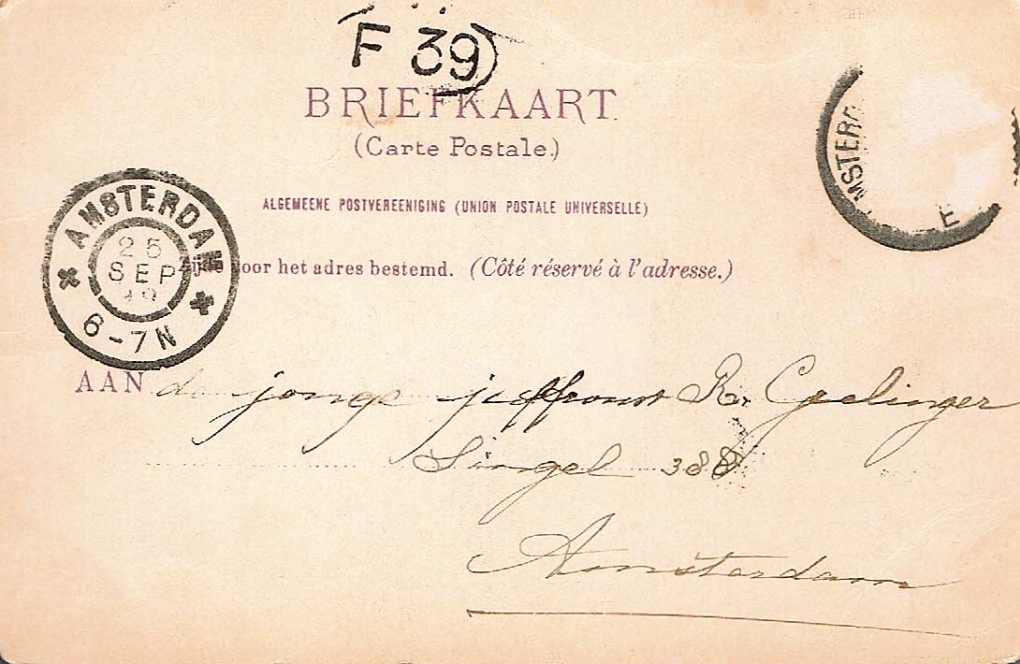 F 39
BRIEFKAART.
(Carte Postale.)
ALGEMEENE POSTVEREENIGING (UNION POSTALE UNIVERSELLE)
AMSTERDAM
25
SEP
6-7N
MSTERD
E
voor het adres bestemd. (Côté réservé à l'adresse.)
AAN de jonge juffrouw R. Geelinger
Singel 388
Amsterdam